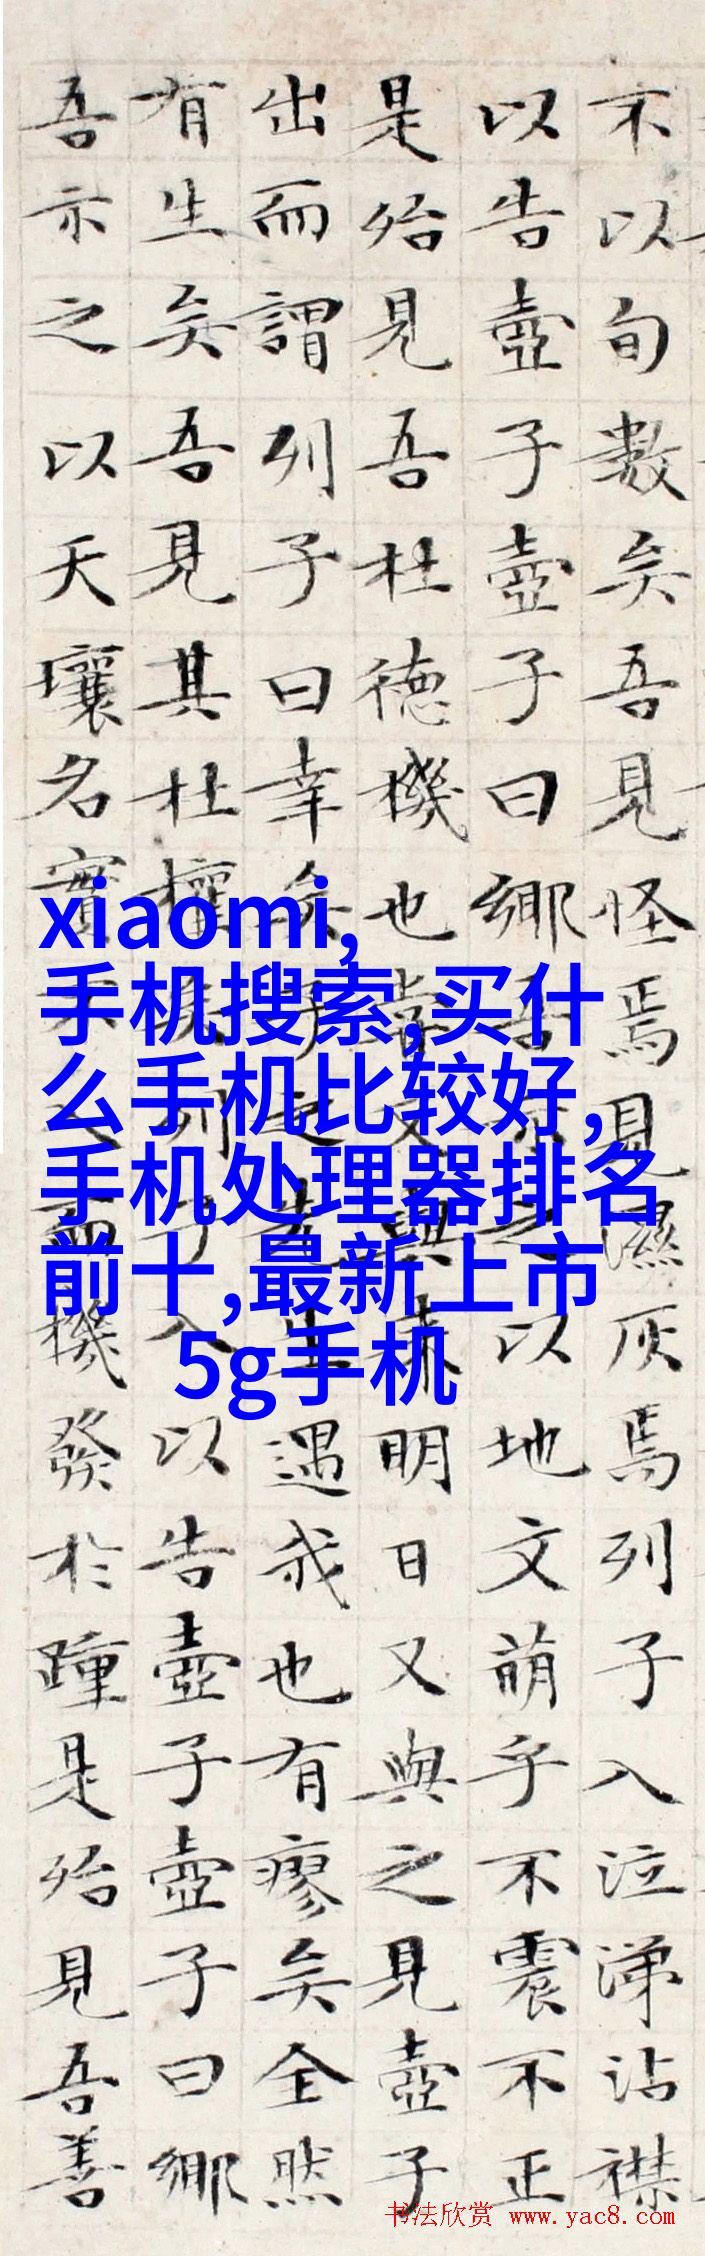 不以旬數矣吾見怪焉見濕灰焉列子入泣涕沾襟
以告壺子壺子曰鄉吾示之以地文萌乎不震不正
是殆見吾杜德機也嘗又與來明日又與之見壺子
出而謂列子曰幸矣子之先生遇我也有瘳矣全然
有生矣吾見其杜權矣列子入以告壺子壺子曰鄉
吾示之以天壤名實不入而機發於踵是殆見吾善
xiaomi,
手机搜索,买什
么手机比较好,
手机处理器排名
前十,最新上市
5g手机
书法欣赏 www.yac8.com